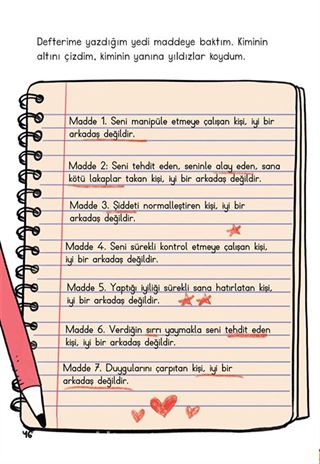 Defterime yazdığım yedi maddeye baktım. Kiminin
altını çizdim, kiminin yanına yıldızlar koydum.
Madde 1. Seni manipüle etmeye çalışan kişi, iyi bir
arkadaş değildir.
Madde 2: Seni tehdit eden, seninle alay eden, sana
kötü lakaplar takan kişi, iyi bir arkadaş değildir.
Madde 3. Şiddeti normalleştiren kişi, iyi bir
arkadaş değildir.
Madde 4. Seni sürekli kontrol etmeye çalışan kişi,
iyi bir arkadaş değildir.
Madde 5. Yaptığı iyiliği sürekli sana hatırlatan kişi,
iyi bir arkadaş değildir.
Madde 6. Verdiğin sırrı yaymakla seni tehdit eden
kişi, iyi bir arkadaş değildir.
Madde 7. Duygularını çarpıtan kişi, iyi bir
arkadaş değildir.
46